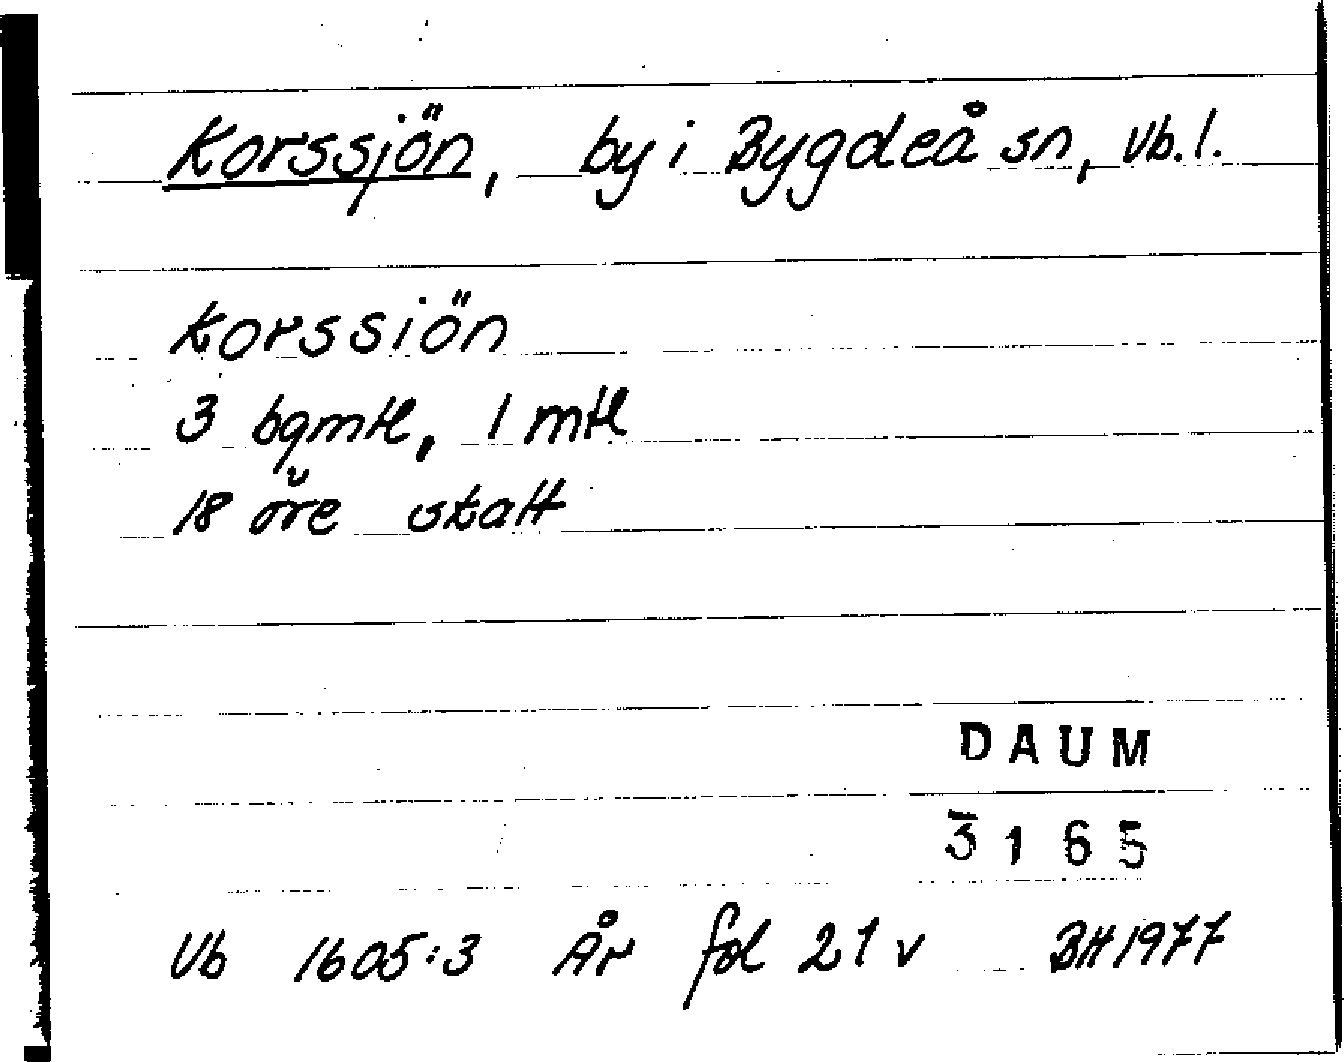 Korssjön, by i Bygdeå sn, Vb.l.
Korssiön
3 bgmtl, 1 mtl
18 öre skatt
DAUM
3165
Vb 1605:3 År fol 21 v BH 1977